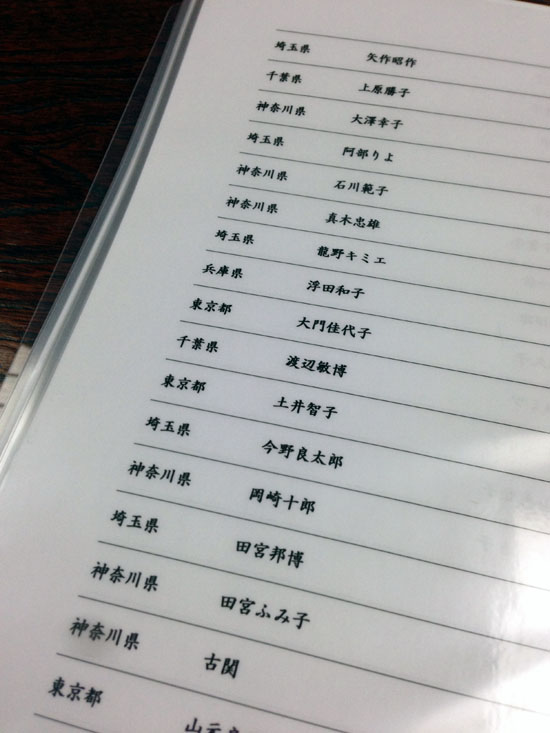 埼玉県 矢作昭作
千葉県 上原勝子
神奈川県 大澤幸子
埼玉県 阿部りよ
神奈川県 石川範子
神奈川県 真木忠雄
埼玉県 龍野キミエ
兵庫県 浮田和子
東京都 大門佳代子
千葉県 渡辺敏博
東京都 土井智子
埼玉県 今野良太郎
神奈川県 岡崎十郎
埼玉県 田宮邦博
神奈川県 田宮ふみ子
神奈川県 古関
東京都 山元